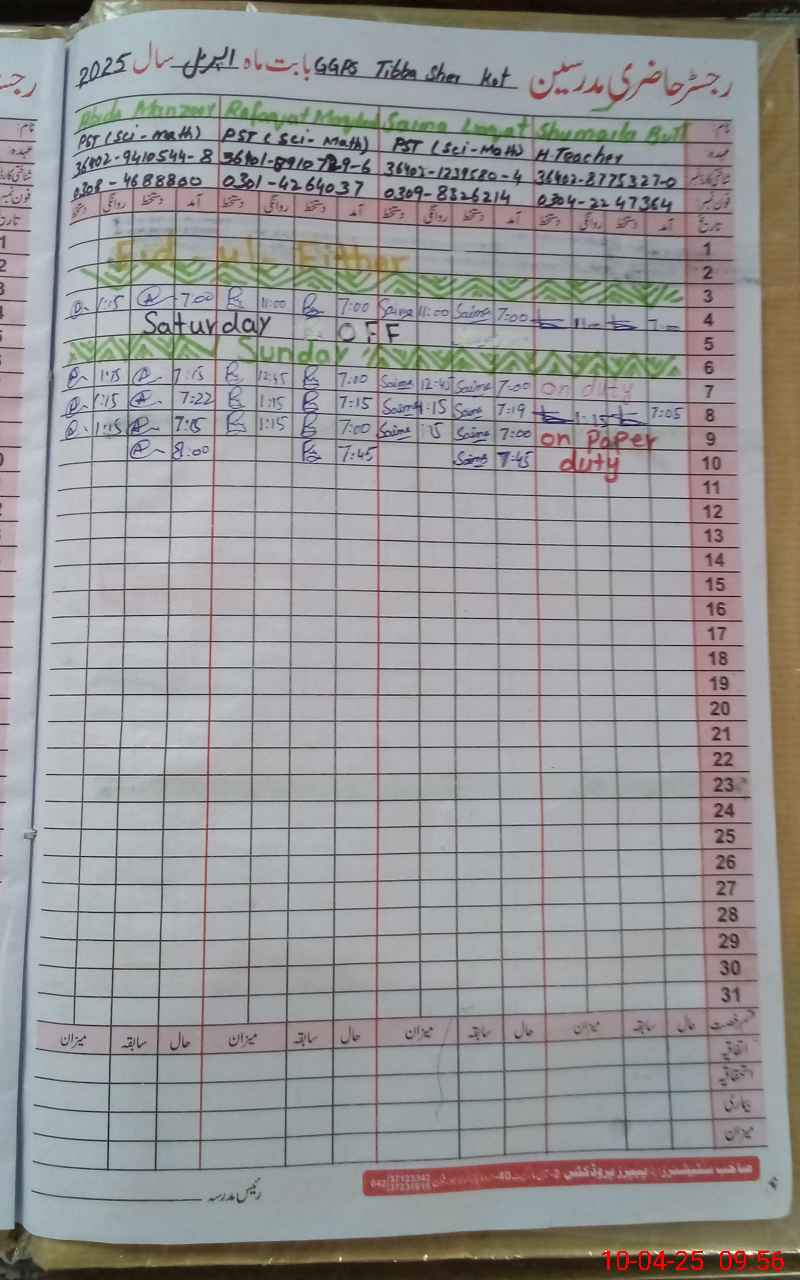 رجسٹر حاضری مدرسین GGPS Tibba Sher Kot بابت ماہ اپریل سال 2025
نام: Shumaila Butt Saima Liaqat Rafaqat Abida Manzoor
عہدہ: H.Teacher PST (Sci-Math) PST (Sci-Math) PST (Sci-Math)
36402-8775327-0 36402-1239580-4 36402-9410544-8
فون نمبر: 0304-2247364 0309-8326214 0301-4264037 0308-4688800
تاریخ آمد دستخط روانگی دستخط آمد دستخط روانگی دستخط آمد دستخط روانگی دستخط آمد دستخط روانگی دستخط
1
2 Eid-ul-Fither
3
4 7:00 Saima 11:00 Saima 7:00 11:00 7:00 1:15
5 Saturday OFF
6 Sunday
7 on duty 7:00 Saima 12:45 Saima 7:00 12:45 7:15 1:15
8 7:05 1:15 7:19 Saima 1:15 Saima 7:15 1:15 7:22 1:15
9 on Paper 7:00 Saima :15 Saima 7:00 1:15 7:15 1:15
10 duty 7:45 Saima 7:45 8:00
11
12
13
14
15
16
17
18
19
20
21
22
23
24
25
26
27
28
29
30
31
حال سابقہ میزان حال سابقہ میزان حال سابقہ میزان حال سابقہ میزان
اتفاقیہ
استحقاقیہ
بیماری
میزان
صاحب سٹیشنرز پیپرز پروڈکٹس
رئیس مدرسہ
10-04-25 09:56